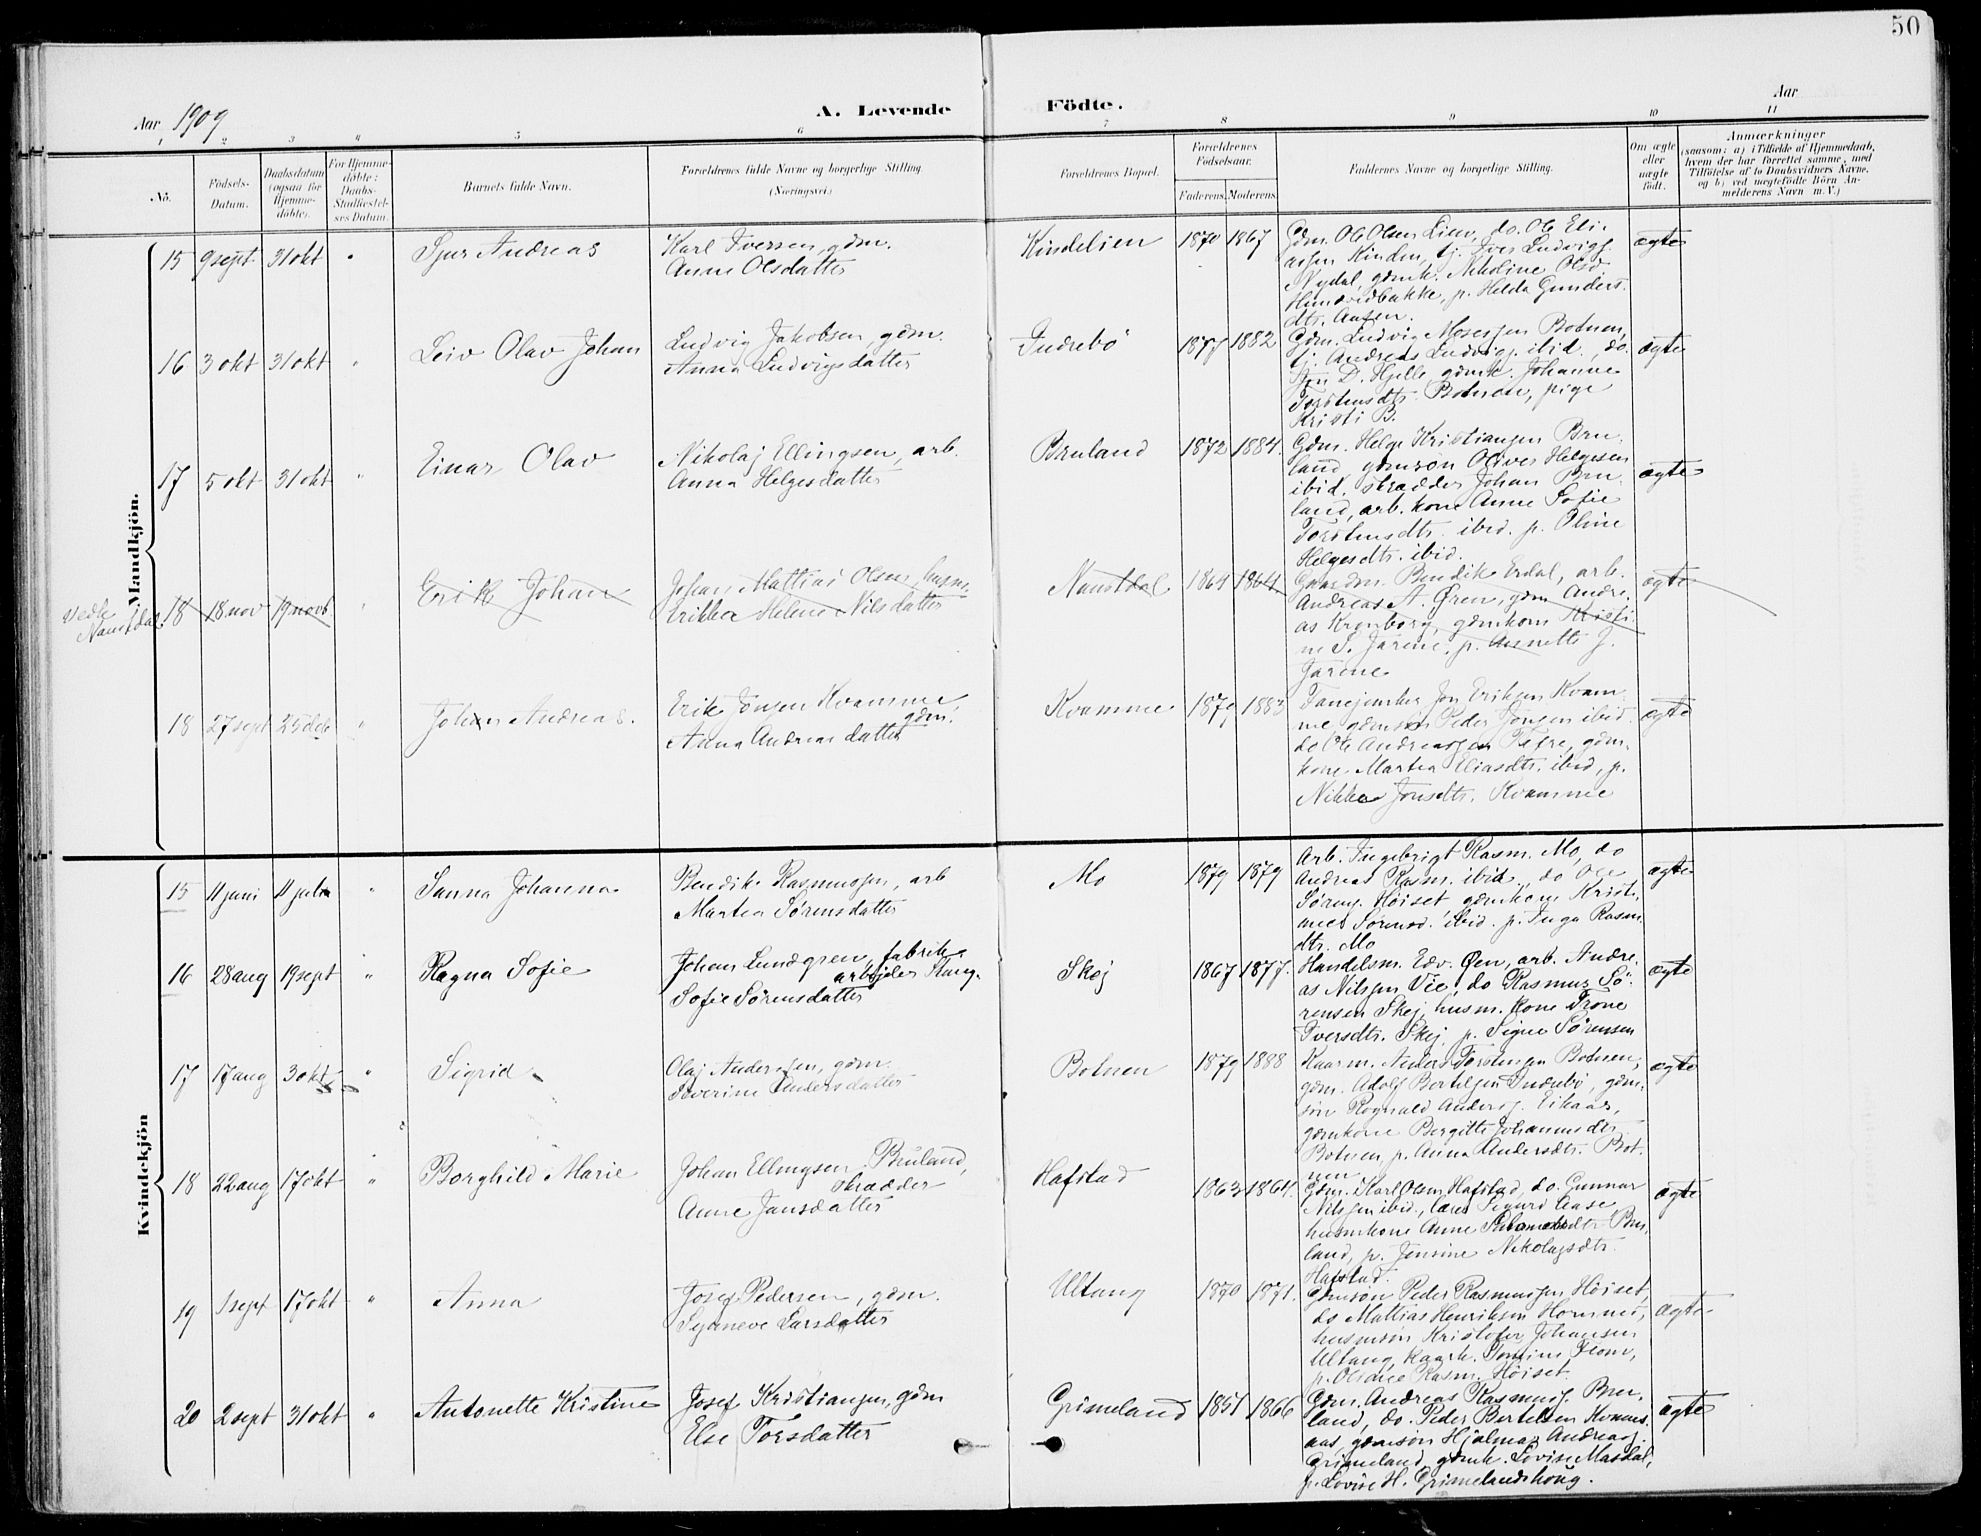 50
Aar 1909
A. Levende
Födte.
Aar
1 2 3 4 5 6 7 8 9 10 11
No.
Födsels-Datum.
Daabsdatum (ogsaa for Hjemmedöbte).
For Hjemmedöbte: Daabs-Stadfæstelses Datum.
Barnets fulde Navn.
Forældrenes fulde Navne og borgerlige Stilling. (Næringsvei.)
Forældrenes Bopæl.
Forældrenes Födselsaar.
Faderens. Moderens.
Faddernes Navne og borgerlige Stilling.
Om ægte eller uægte födt.
Anmærkninger
(saasom: a) i Tilfælde af Hjemmedaab,
hvem der har forrettet samme, med
Tilföielse af to Daabsvidners Navne.
og b) ved uægtefödte Börn An-
melderens Navn m. V.)
Mandkjön.
15 9 sept 31 okt " Sjur Andreas
Karl Iversen, gdm.
Anne Olsdatter
Kindelien 1870 1867
Gdm. Ole Olsen Lien, do. Ole Eli-
assen Kinden, tj. Iver Ludvigs.
Nydal, gdmk. Nikoline Olsd
p. Helda Gunders.
dtr. Aasen.
ægte
16 3 okt 31 okt " Leiv Olav Johan
Ludvig Jakobsen, gdm.
Anna Ludvigsdatter
Indrebö 1877 1882
Gdm. Ludvig Mosessen Botnen,
tj. Andreas Ludvigs. ibid, do.
D. Hjelle gdmk. Johanne
Torstensdtr. Botnen, pige
Kristi B.
ægte
17 5 okt 31 okt " Einar Olav
Nikolaj Ellingsen, arb.
Anna Helgesdatter
Bruland 1872 1884.
Gdm. Helge Kristiansen Bru-
land, gdmsön Oliver Helgesen
ibid. skrædder Johan Bru-
land, arb. kone Anne Sofie
Torstensdtr. ibid. p. Oline
Helgesdtr. ibid.
ægte
vedk. Naustdal.
18 18 nov 19 novb " Erik Johan
Johan Mattias Olsen, husm.
Erikka Helene Nilsdatter
Naustdal 1864 1864
Gaardm. Bendik Erdal, arb.
Andreas A. Øren, gdm Andre-
as Kronborg, gdmkone Kristi-
ne S. Jarene, p. Annette J.
Jarene
ægte
18 27 sept 25 deb " Johan Andreas.
Erik Jonsen Kvamme
gdm.
Anna Andreasdatter
Kvamme 1879 1883
Jon Eriksen Kvam-
me gdmsön Peder Jonsen ibid.
do Ole Andreassen Tefre, gdm-
kone Martea Eliasdtr. ibid, p.
Nikka Jonsdtr. Kvamme
ægte
Kvindekjön
15 11 juni 11 juli " Sanna Johanna
Bendik Rasmussen, arb
Martea Sörensdatter
Mo 1879 1879
Arb. Ingebrigt Rasm. Mo, do
Andreas Rasm. ibid, do Ole
Sörens. Höiset gdmkone Kristi-
Sörensd. ibid. p. Inga Rasm.
dtr. Mo
ægte
16 28 aug 19 sept " Ragna Sofie
Johan Lundgren, fabrik-
arbejder
Sofie Sörensdatter
Skej 1867 1877.
Handelsm. Edv. Øen, arb. Andre-
as Nilssen Vie, do Rasmus Sö-
rensen Skej, husm. kone Trone
Iversdtr. Skej p. Signe Sörensen
ægte
17 17 aug 3 okt " Sigrid
Olaj Anderssen, gdm
Severine Andersdatter
Botnen 1879 1888
Kaarm. Anders Torstensen Botnen,
gdm. Adolf Bertelsen Indrebö, gdm-
sön Rognald Anders. Eikaas,
gdmkone Bergitte Johannesdtr
Botnen p. Anna Andersdtr. Bot-
nen
ægte
18 22 aug 17 okt " Borghild Marie
Johan Ellingsen Bruland,
skrædder
Anne Jansdatter
Hafstad 1863 1864.
Gdm. Karl Olsen Hafstad, do. Gunnar
Nilssen ibid., lærer Sigurd
husmkone Anne Bru-
land, p. Jensine Nikolajsdtr.
Hafstad.
ægte
19 1 sept 17 okt " Anna
Josef Pedersen, gdm.
Synneve Larsdatter
Ultang 1870 1871.
Gdmsön Peder Rasmussen Höiset,
do Mattias Henriksen Hornnes,
husmsön Kristofer Johansen
Ultang, kaark. Tomine Flom,
p. Oldine Rasm. Höiset.
ægte
20 2 sept 31 okt " Antonette Kristine
Josef Kristiansen, gdm
Else Torsdatter
Grimeland 1851 1866
Gdm. Andreas Rasmuss. Bru-
land, do. Peder Bertelsen Kvams-
aas, gdmsön Hjalmar Andreass.
Grimeland, gdmk. Lovise Masdal,
p. Lovise H. Grimelandshaug.
ægte